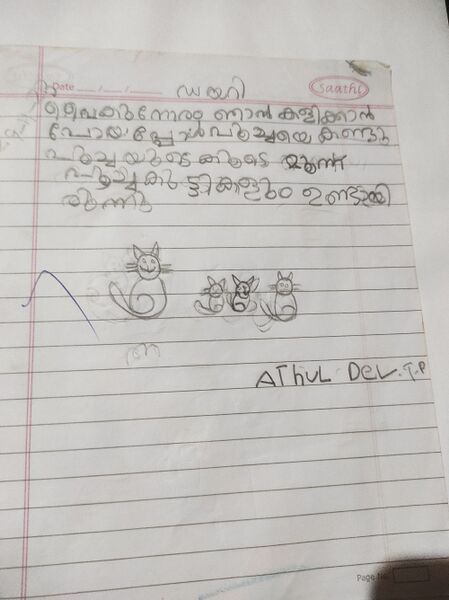 Date ___/___/___ ഡയറി Saathi
വൈകുന്നേരം ഞാൻ കളിക്കാൻ
പോയപ്പോൾ പൂച്ചയെ കണ്ടു
പൂച്ചയുടെ കൂടെ മൂന്ന്
പൂച്ചകുട്ടികളും ഉണ്ടായി
രുന്നു
AThUL Dev.T.P
Page No.